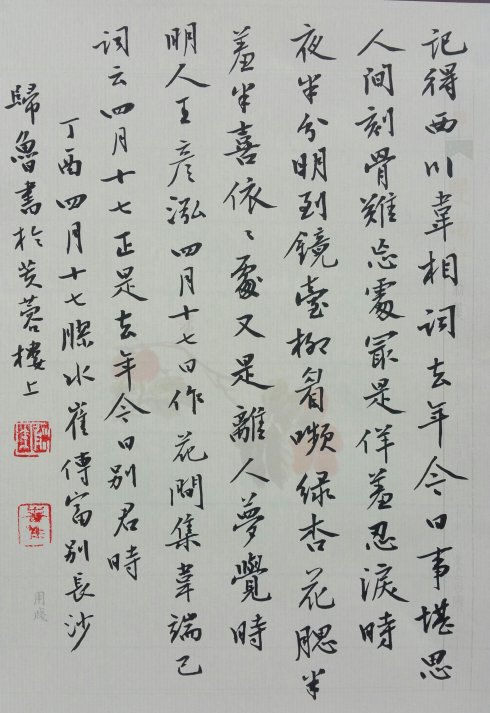 記得西川韋相词去年今日事堪思
人间刻骨難忘處最是佯羞忍淚時
夜半分明到鏡臺柳眉嚬緑杏花腮半
羞半喜依〻處又是離人夢覺時
明人王彦泓四月十七日作花間集韋端己
词云四月十七正是去年今日别君時
丁酉四月十七滕水崔傳富别長沙
歸魯書於芙蓉樓上
用牋